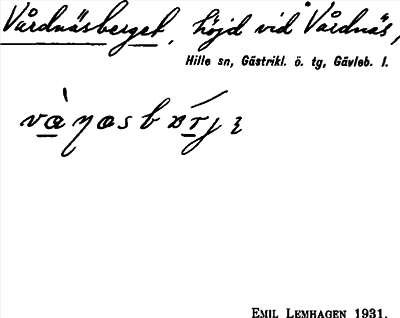 Vårdnäsberget, höjd vid Vårdnäs,
Hille sn, Gästrikl. ö. tg, Gävleb. l.
EMIL LEMHAGEN 1931.